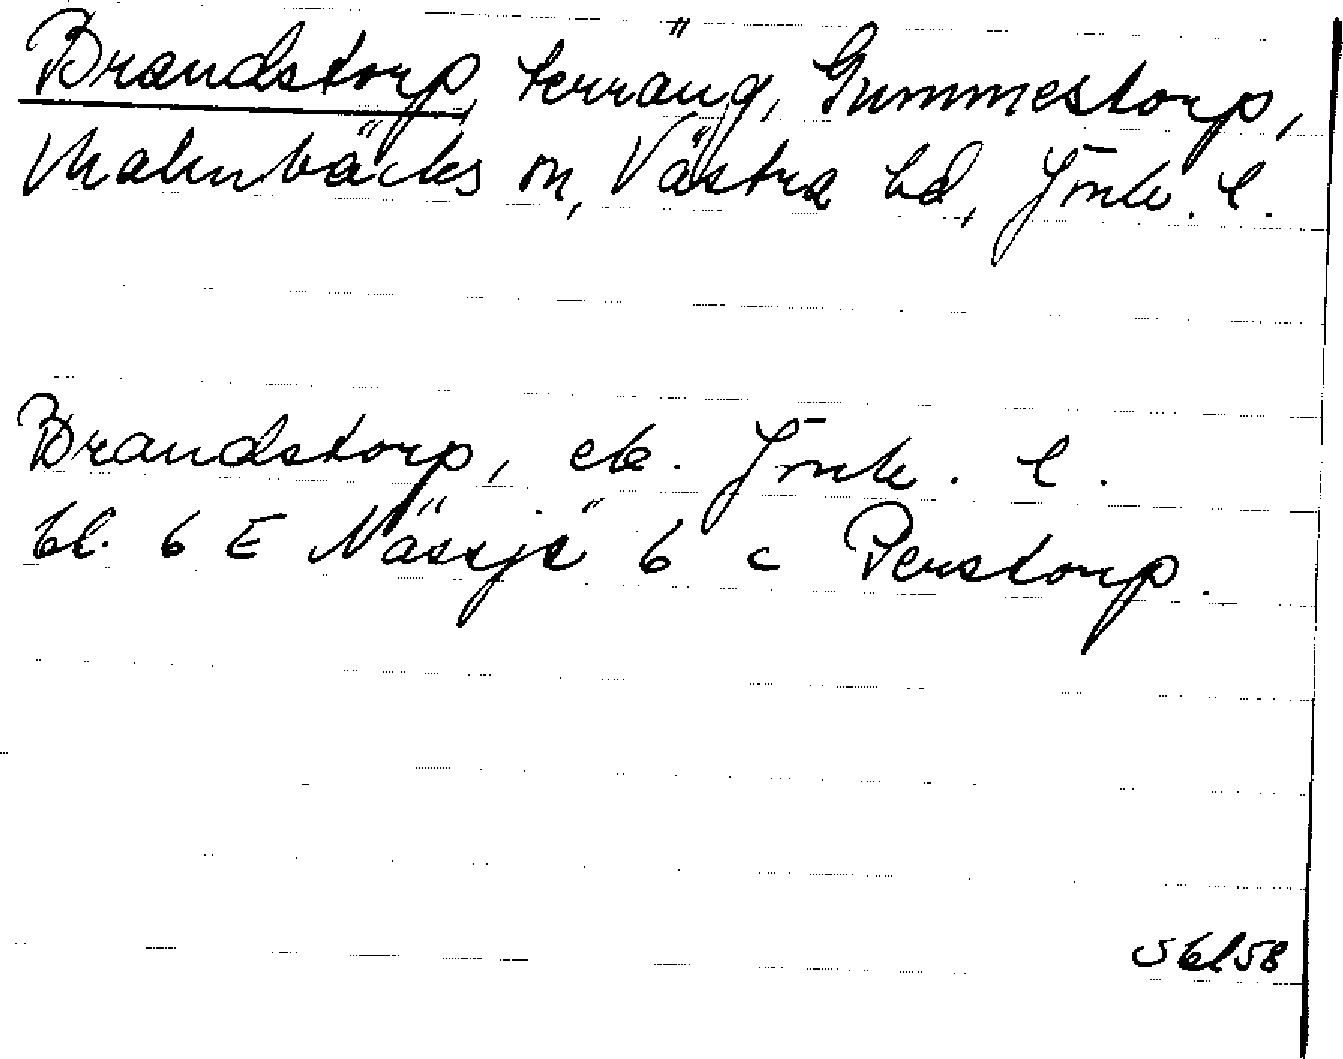 Brandstorp, terräng, Gummestorp,
Malmbäcks sn, Västra hd, Jönk. l.
Brandstorp, ek. Jönk. l.
bl. 6 E Nässjö 6 c Perstorp.
Sbl 58